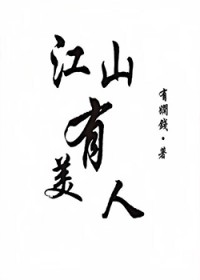 江山有美人
有爛錢·著